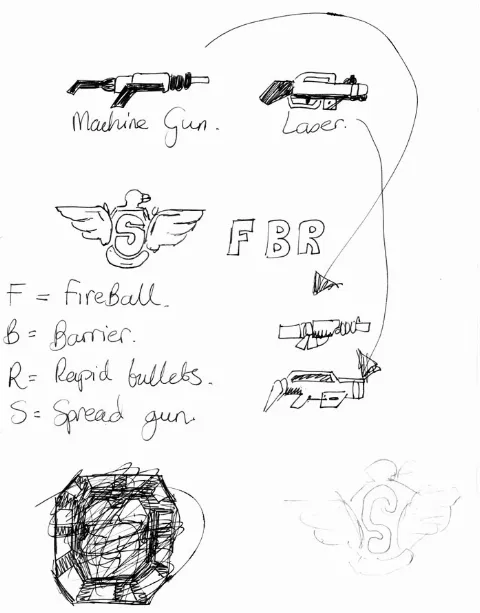 Machine Gun.
Laser.
S
FBR
F = FireBall.
B = Barrier.
R = Rapid bullets.
S = Spread gun.
S